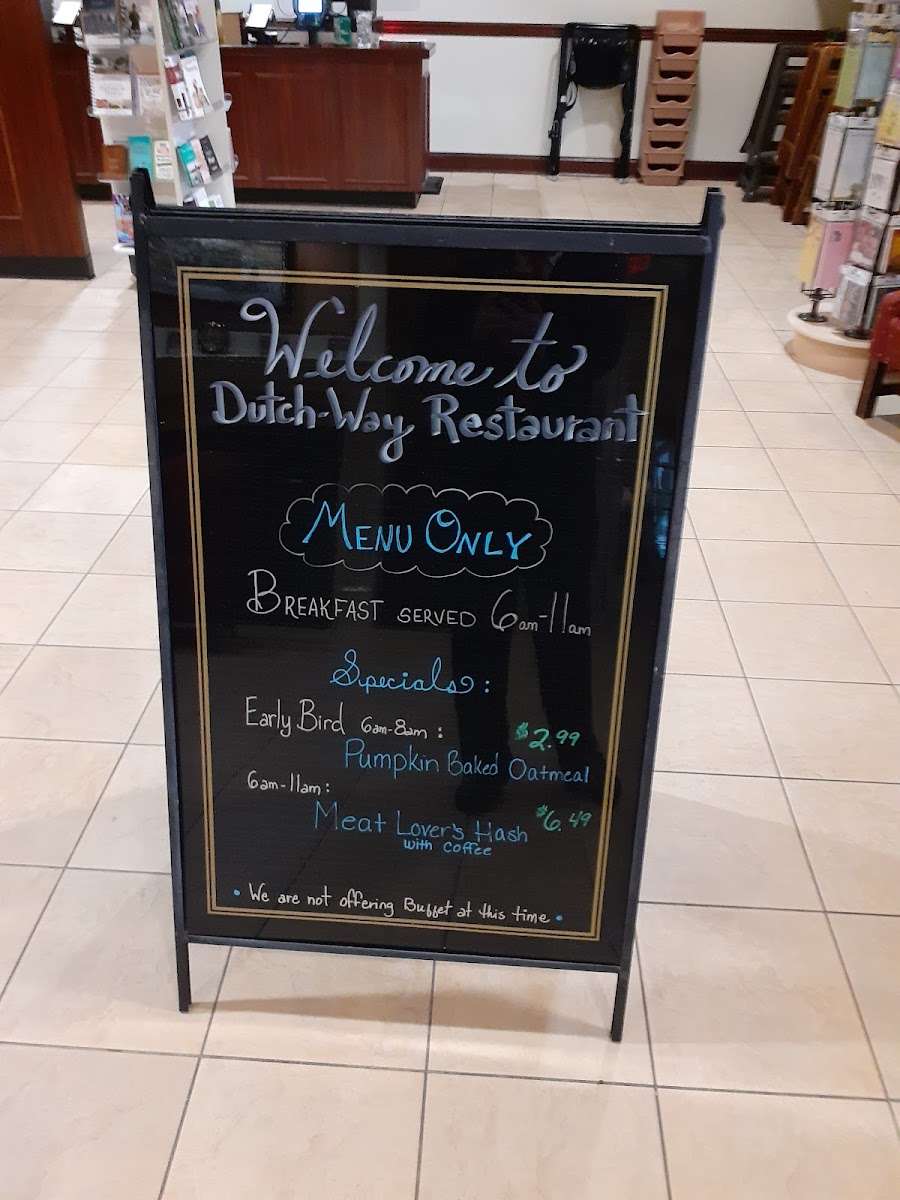 Welcome to
Dutch-Way Restaurant
Menu Only
Breakfast served 6am-11am
Specials:
Early Bird 6am-8am: $2.99
Pumpkin Baked Oatmeal
6am-11am:
Meat Lover's Hash $6.49
with coffee
• We are not offering Buffet at this time •